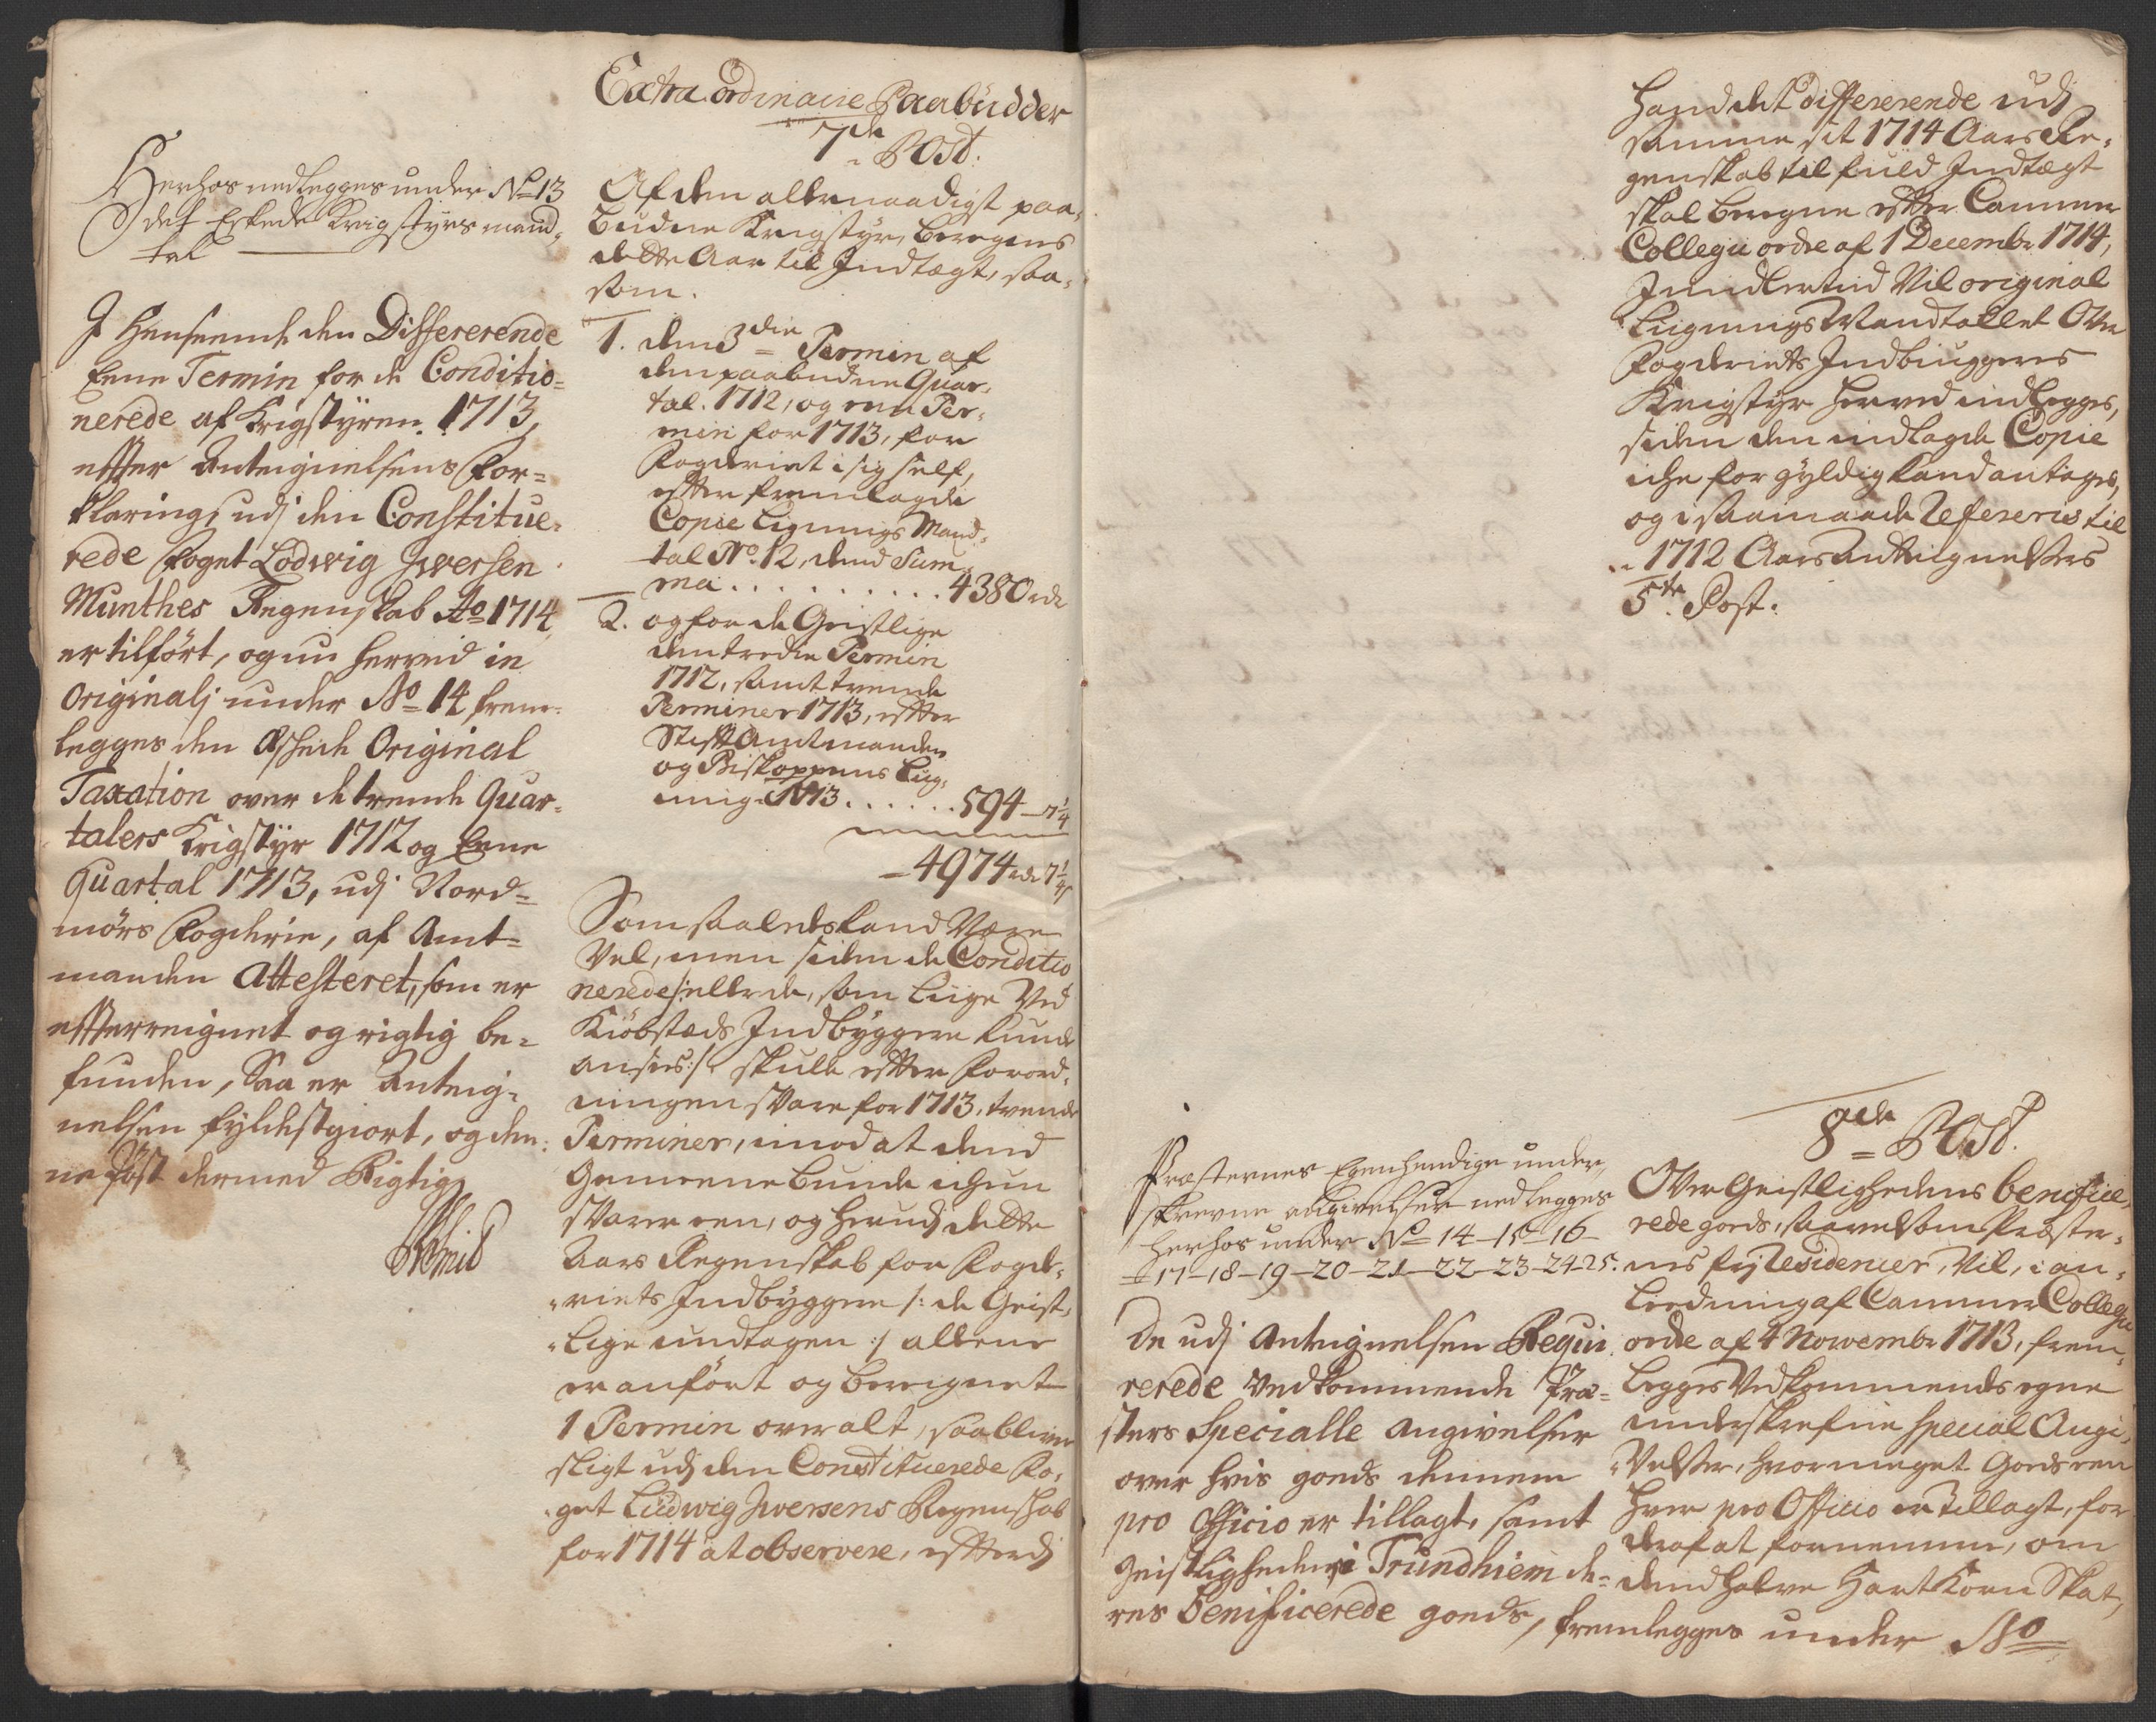 Extra ordinaire Paabudder
7de Post.
Herhos nedlegges under No 13
det Eskede Krigstyrs mand-
tal
I Henseende den Differerende
Eene Termin for de Conditio-
nerede af Krigstyren 1713,
efter Antegnelsens For-
klaring, udj den Constitue-
rede Foget Lodwig Iwersen
Munthes Regenskab Ao 1714
er tilført, og nu herved in
Originalj under No 14 frem-
legges den Original
Taxation over de trende Quar-
talers Krigstyr 1712 og Eene
Quartal 1713, udj Nord-
mörs Fogderie, af Amt-
manden Attesteret, som er
effterreignet og rigtig be-
funden, Saa er Anteig-
nelsen fyldestgiort, og den-
ne Post dermed Rigtig
Af den allernaadigst paa-
budne Krigstyr, beregnes
dette Aar til Indtægt, saa-
som.
1. den 3die Termin af
den paabudne Quar-
tal. 1712, og een Ter-
min for 1713, for
Fogderiet i sig self,
efter fremlagde
Copie Lignings Mand-
tal No. 12, dend Sum-
ma . . . . . . . . . . 4380 rdr
2. og for de Geistlige
den tredie Termin
1712, samt trende
Terminer 1713, efter
Stiftamtmanden
og Biskoppens Lig-
ning No 13 . . . . . . 594 – 7 1/4
– 4974 rdr 7 1/4
Som saaledes kand Være
Vel, men siden de Conditio
nerede /: eller de, som lige Ved
Kiöbstæds Indbyggere kunde
ansees :/ skulle efter Forord-
ningen svare for 1713, trende
Terminer, imod at dend
Gemeene bunde ichun
svarer een, og herudj dette
Aars Regenskab for Fogde-
riets Indbyggere /: de Geist-
lige undtagen :/ allene
er anfört og beregnet
1 Termin over alt, saa bliver
sligt udj den Constituerede Fo-
get Ludwig Iwersens Regenskab
for 1714 at observere, efterdj
hand det differerende udj
samme sit 1714 Aars Re-
genskab til fuld Indtægt
skal beregne efter Cammer
Collegii ordre af 1 Decembr 1714,
Imidlertid Vil original
Lignings Mandtallet Over
Fogderiets Indbiuggeres
Krigstyr herved indlegges,
siden den indlagde Copie
iche for gyldig kand antages,
og i saamaade Refereris til
1712 Aars Antegnelses
5te Post.
8de Post.
Præsternes Egenhendige under-
skrevne angivelser nedlegges
herhos under No 14–15–16–
–17–18–19–20–21–22–23–24–25.
De udj Antegnelsen Requi-
rerede vedkommende Præ-
sters Specialle angivelser
over hvis goeds dennem
pro Officio er tillagt, samt
Geistligheden i Trundhiem de-
res benificerede goeds, fremlegges under No
Over Geistlighedens benificie-
rede gods, saavelsom Præster-
nes frj Residencer, Vil, i an-
leedning af Cammer Collegii
ordre af 4 Nowembr 1713, frem-
legges Vedkommendes egne
underskrefne special Angi-
Velser, hvor meget Goeds een
hver pro Officio er tillagt, for
deraf at fornemme, om
dend halve Hart Korn Skat,